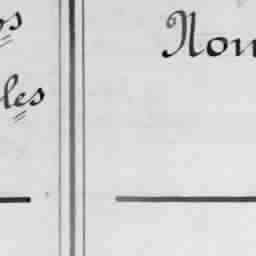 os
les
Nou